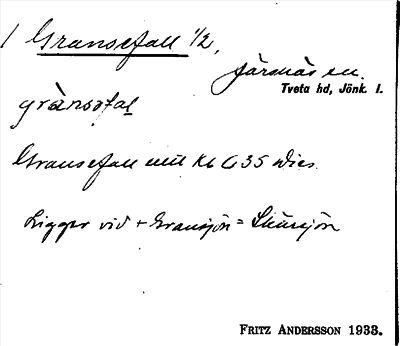 1 Gransefall 1/2,
Järsnäs sn.
Tveta hd, Jönk. l.
grànsəfal
Gransefall mtl Kb G35 Dics.
Ligger vid + Gransjön =
FRITZ ANDERSSON 1933.